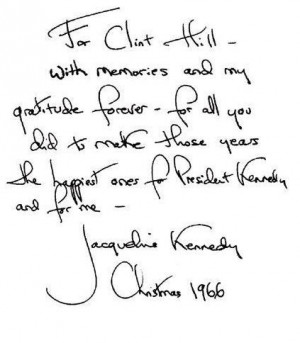 For Clint Hill -
with memories and my
gratitude forever - for all you
did to make those years
the happiest ones for President Kennedy
and for me -
Jacqueline Kennedy
Christmas 1966